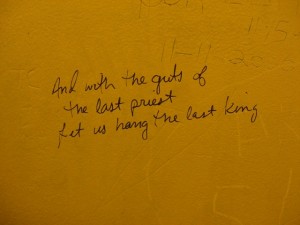 11-11-20
And with the guts of
the last priest
Let us hang the last king